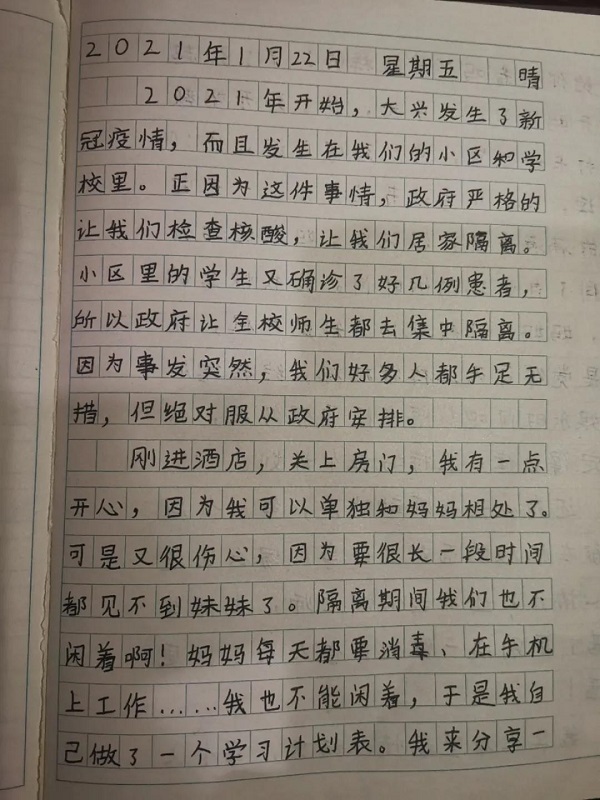 2021年1月22日 星期五 晴
2021年开始，大兴发生了新
冠疫情，而且发生在我们的小区和学
校里。正因为这件事情，政府严格的
让我们检查核酸，让我们居家隔离。
小区里的学生又确诊了好几例患者，
所以政府让全校师生都去集中隔离。
因为事发突然，我们好多人都手足无
措，但绝对服从政府安排。
刚进酒店，关上房门，我有一点
开心，因为我可以单独和妈妈相处了。
可是又很伤心，因为要很长一段时间
都见不到妹妹了。隔离期间我们也不
闲着啊！妈妈每天都要消毒、在手机
上工作……我也不能闲着，于是我自
己做了一个学习计划表。我来分享一